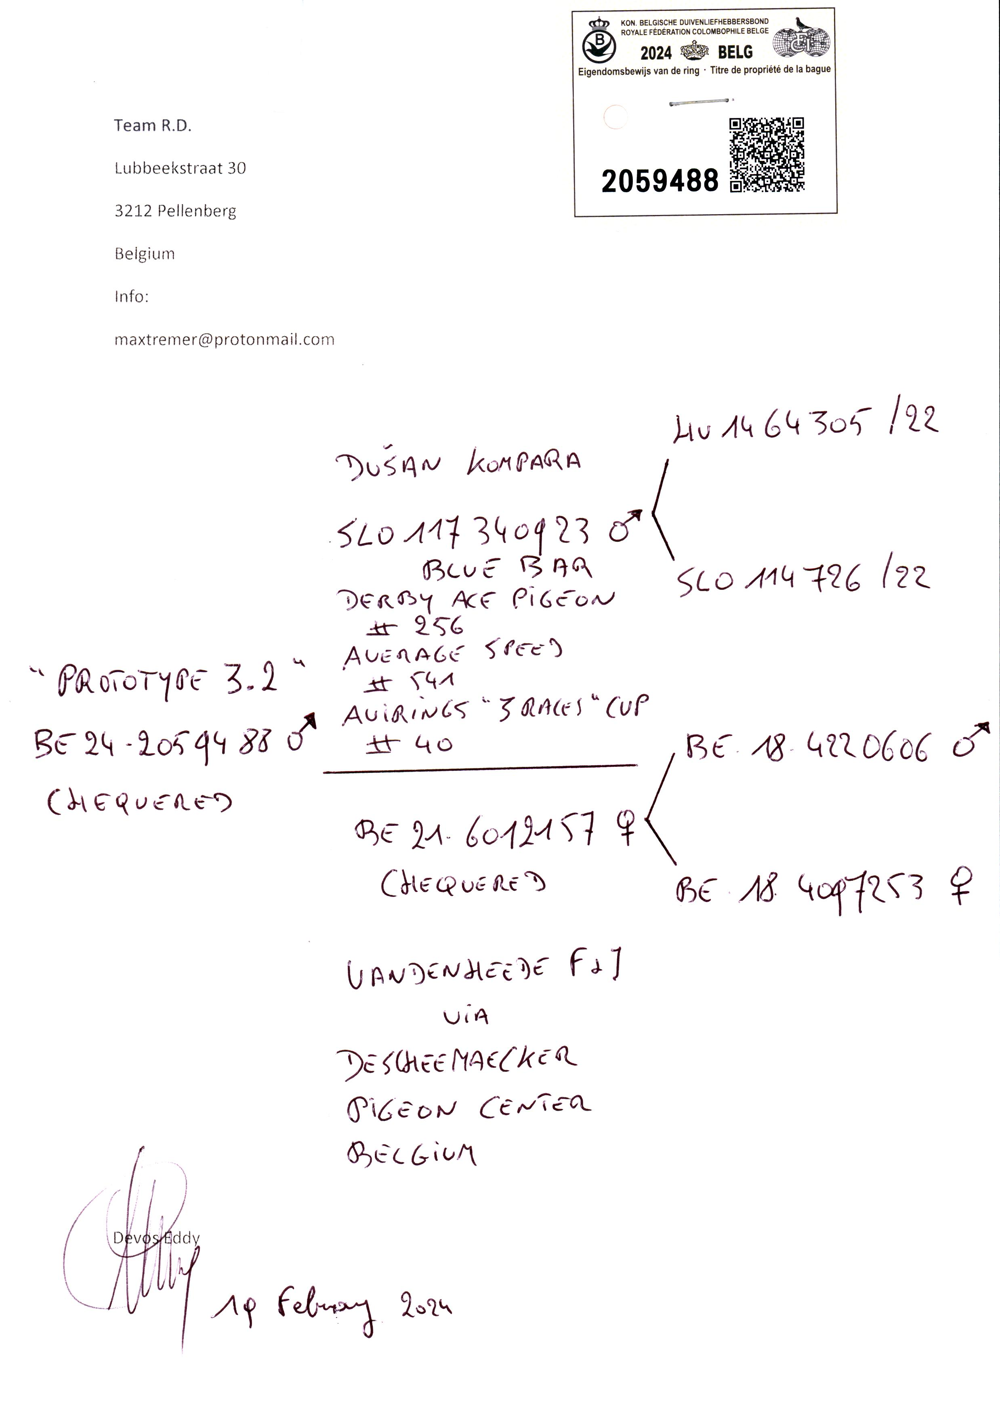 KON. BELGISCHE DUIVENLIEFHEBBERSBOND
ROYALE FÉDÉRATION COLOMBOPHILE BELGE
B
FCI
2024 BELG
Eigendomsbewijs van de ring · Titre de propriété de la bague
2059488
Team R.D.
Lubbeekstraat 30
3212 Pellenberg
Belgium
Info:
maxtremer@protonmail.com
HU 1464305 /22
DUŠAN KOMPARA
SLO 117340923 ♂
BLUE BAR
SLO 114726 /22
DERBY ACE PIGEON
# 256
AVERAGE SPEED
# 541
AVIRINGS "3 RACES" CUP
# 40
"PROTOTYPE 3.2"
BE 24-2059488 ♂
CHEQUERED
BE 18. 4220606 ♂
BE 21. 6012157 ♀
CHEQUERED
BE 18. 4097253 ♀
VANDENHEEDE F&J
VIA
DESCHEEMAECKER
PIGEON CENTER
BELGIUM
Devos Eddy
19 February 2024